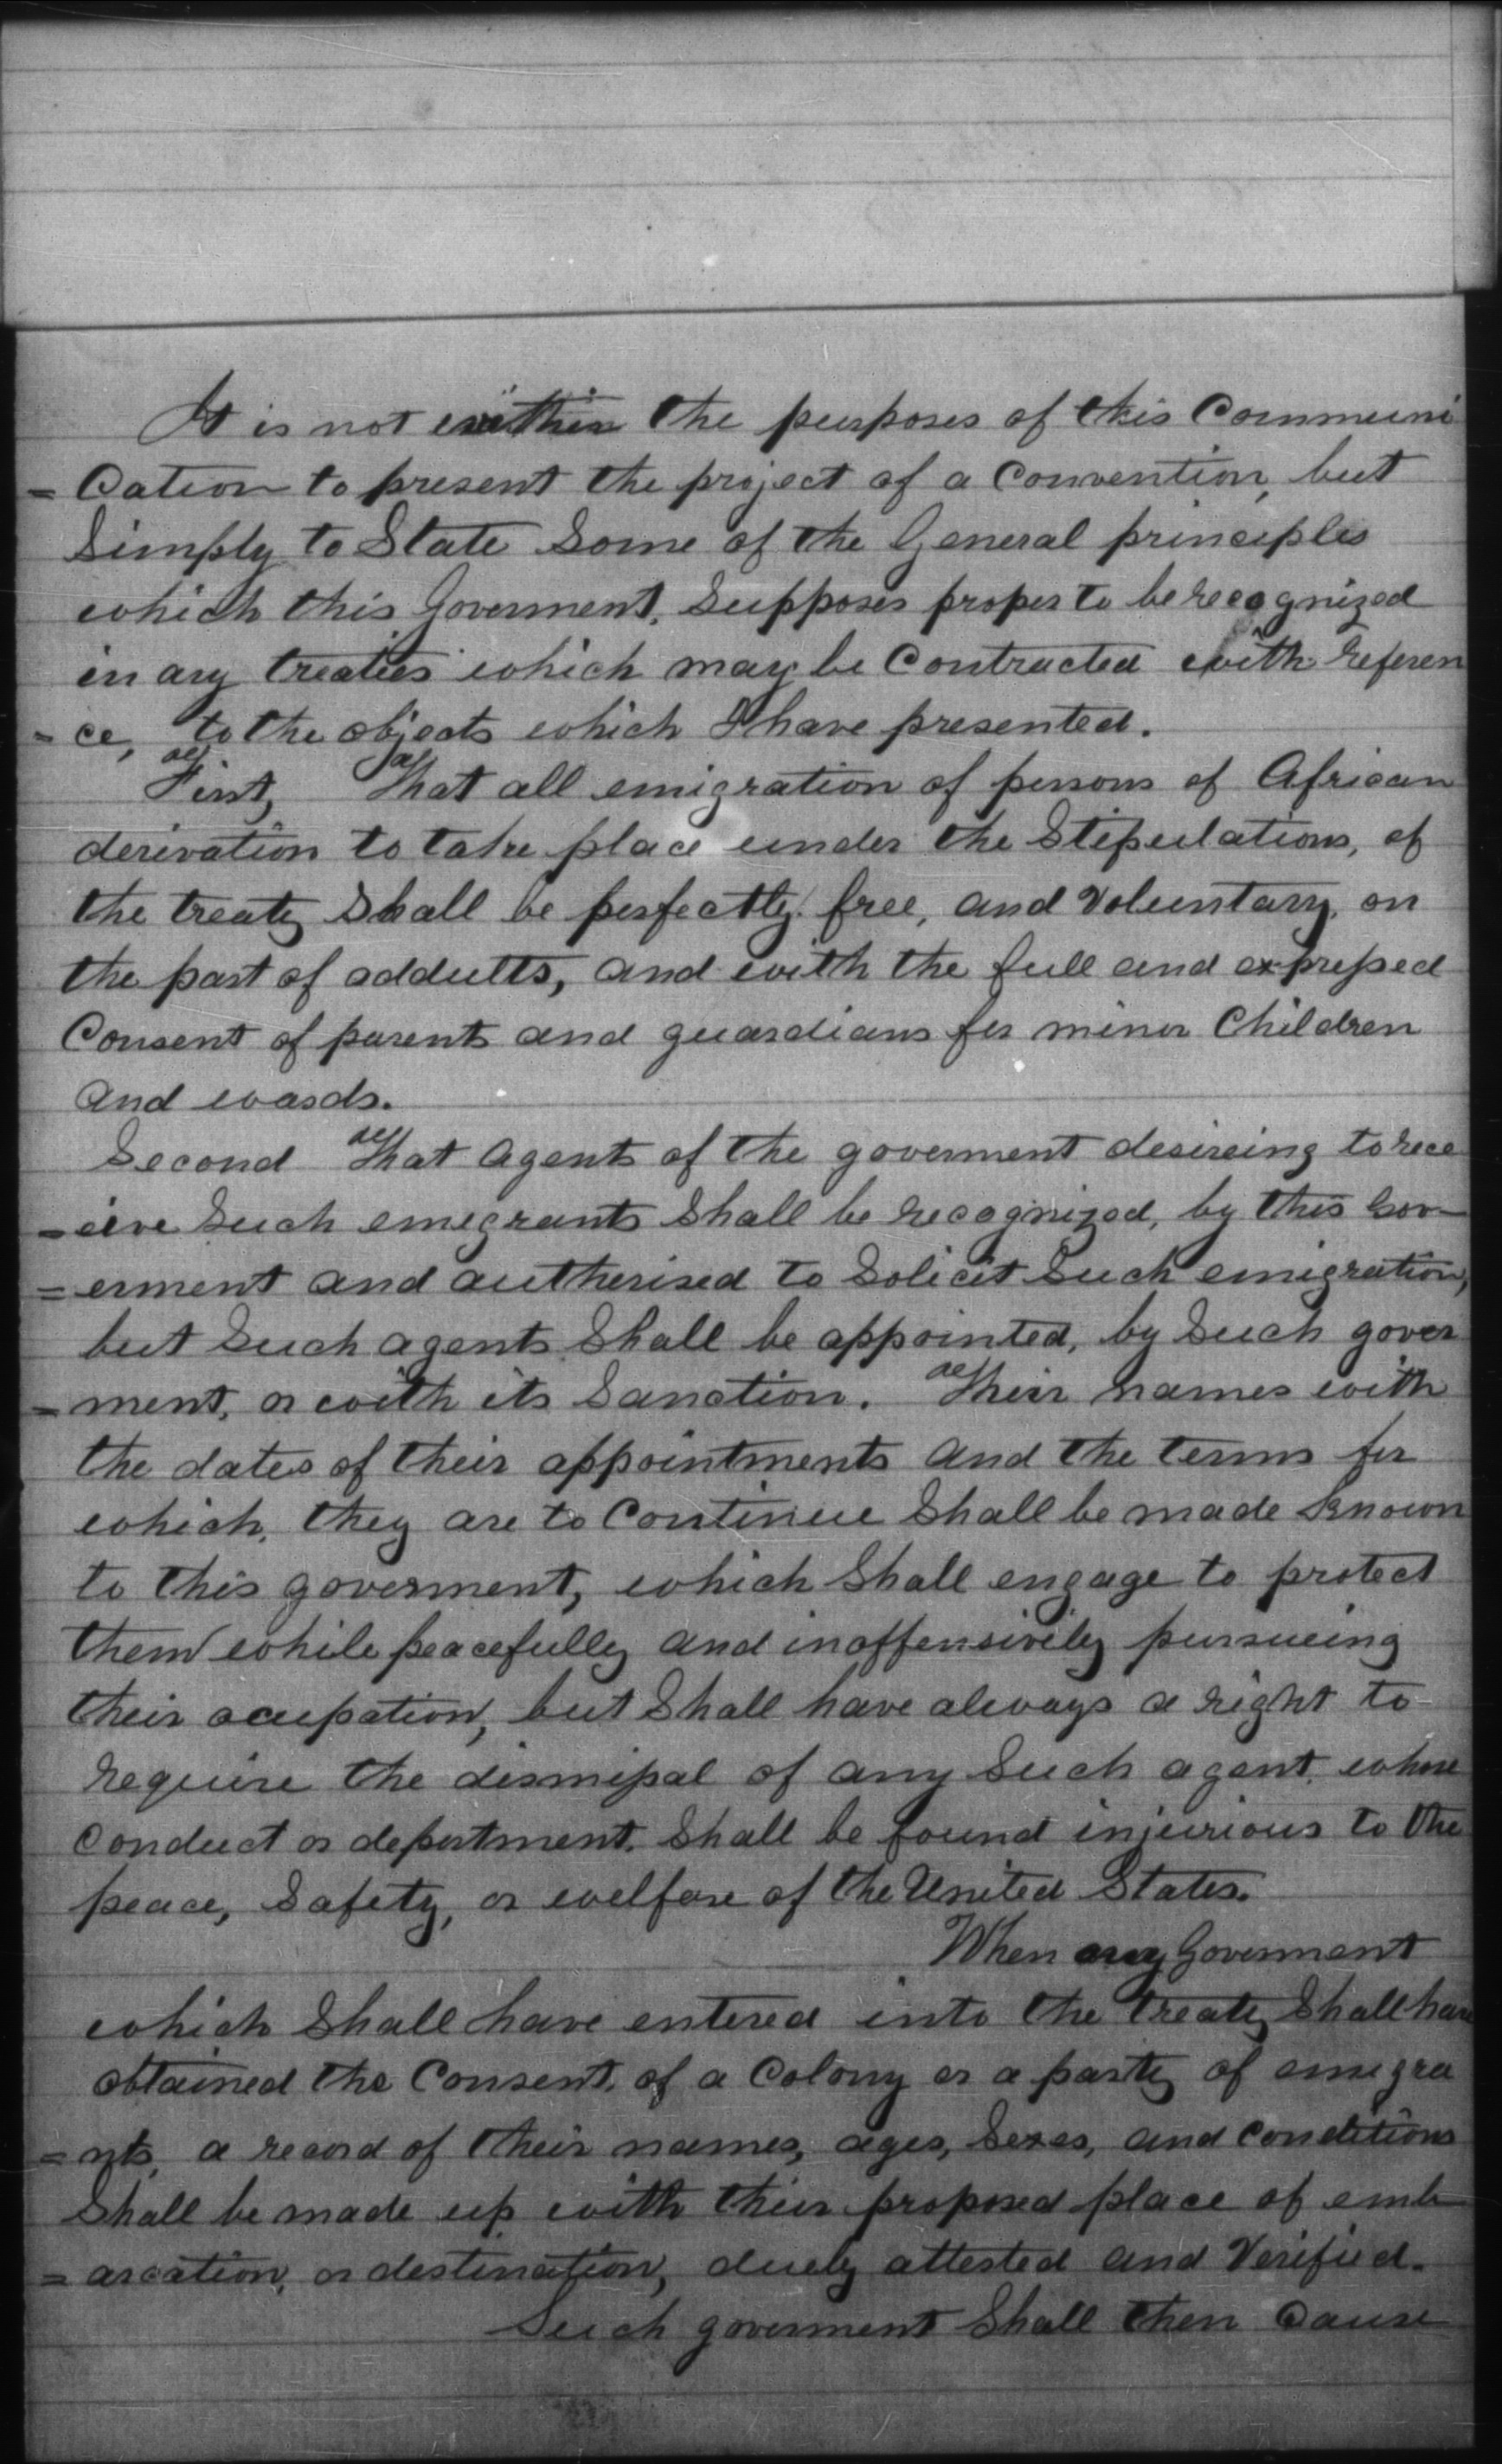 It is not within the purposes of this Communi
=cation to present the project of a Convention, but
Simply to State Some of the General principles
which this Goverment, Supposes proper to be recognized
in any treaties which may be Contracted with referen
=ce, to the objects which I have presented.
First, That all emigration of persons of African
derivation to take place under the Stipulations, of
the treaty Shall be perfectly free, and Voluntary, on
the part of addults, and with the full and expressed
Consent of parents and guardians for minor Children
and wards.
Second That agents of the goverment desireing to rece
=eive Such emegrants Shall be recognized, by this Gov-
=erment and autherised to Solicit Such emigration,
but Such agents Shall be appointed, by Such gover
=ment, or with its Sanction. Their names with
the dates of their appointments and the terms for
which, they are to Continue Shall be made Known
to this goverment, which Shall engage to protect
them while peacefully and inoffensivily pursueing
their acupation, but Shall have always a right to
require the dismissal of any Such agent, whose
Conduct or depertment, Shall be found injurious to the
peace, Safety, or welfare of the United States.
When any Goverment
which Shall have entered into the treaty Shall have
obtained the Consent, of a Colony or a party of emigra
=nts, a record of their names, ages, Sexes, and Conditions
Shall be made up with their proposed place of emb
=arcation, or destination, duely attested and Verified.
Such goverment Shall then Cause